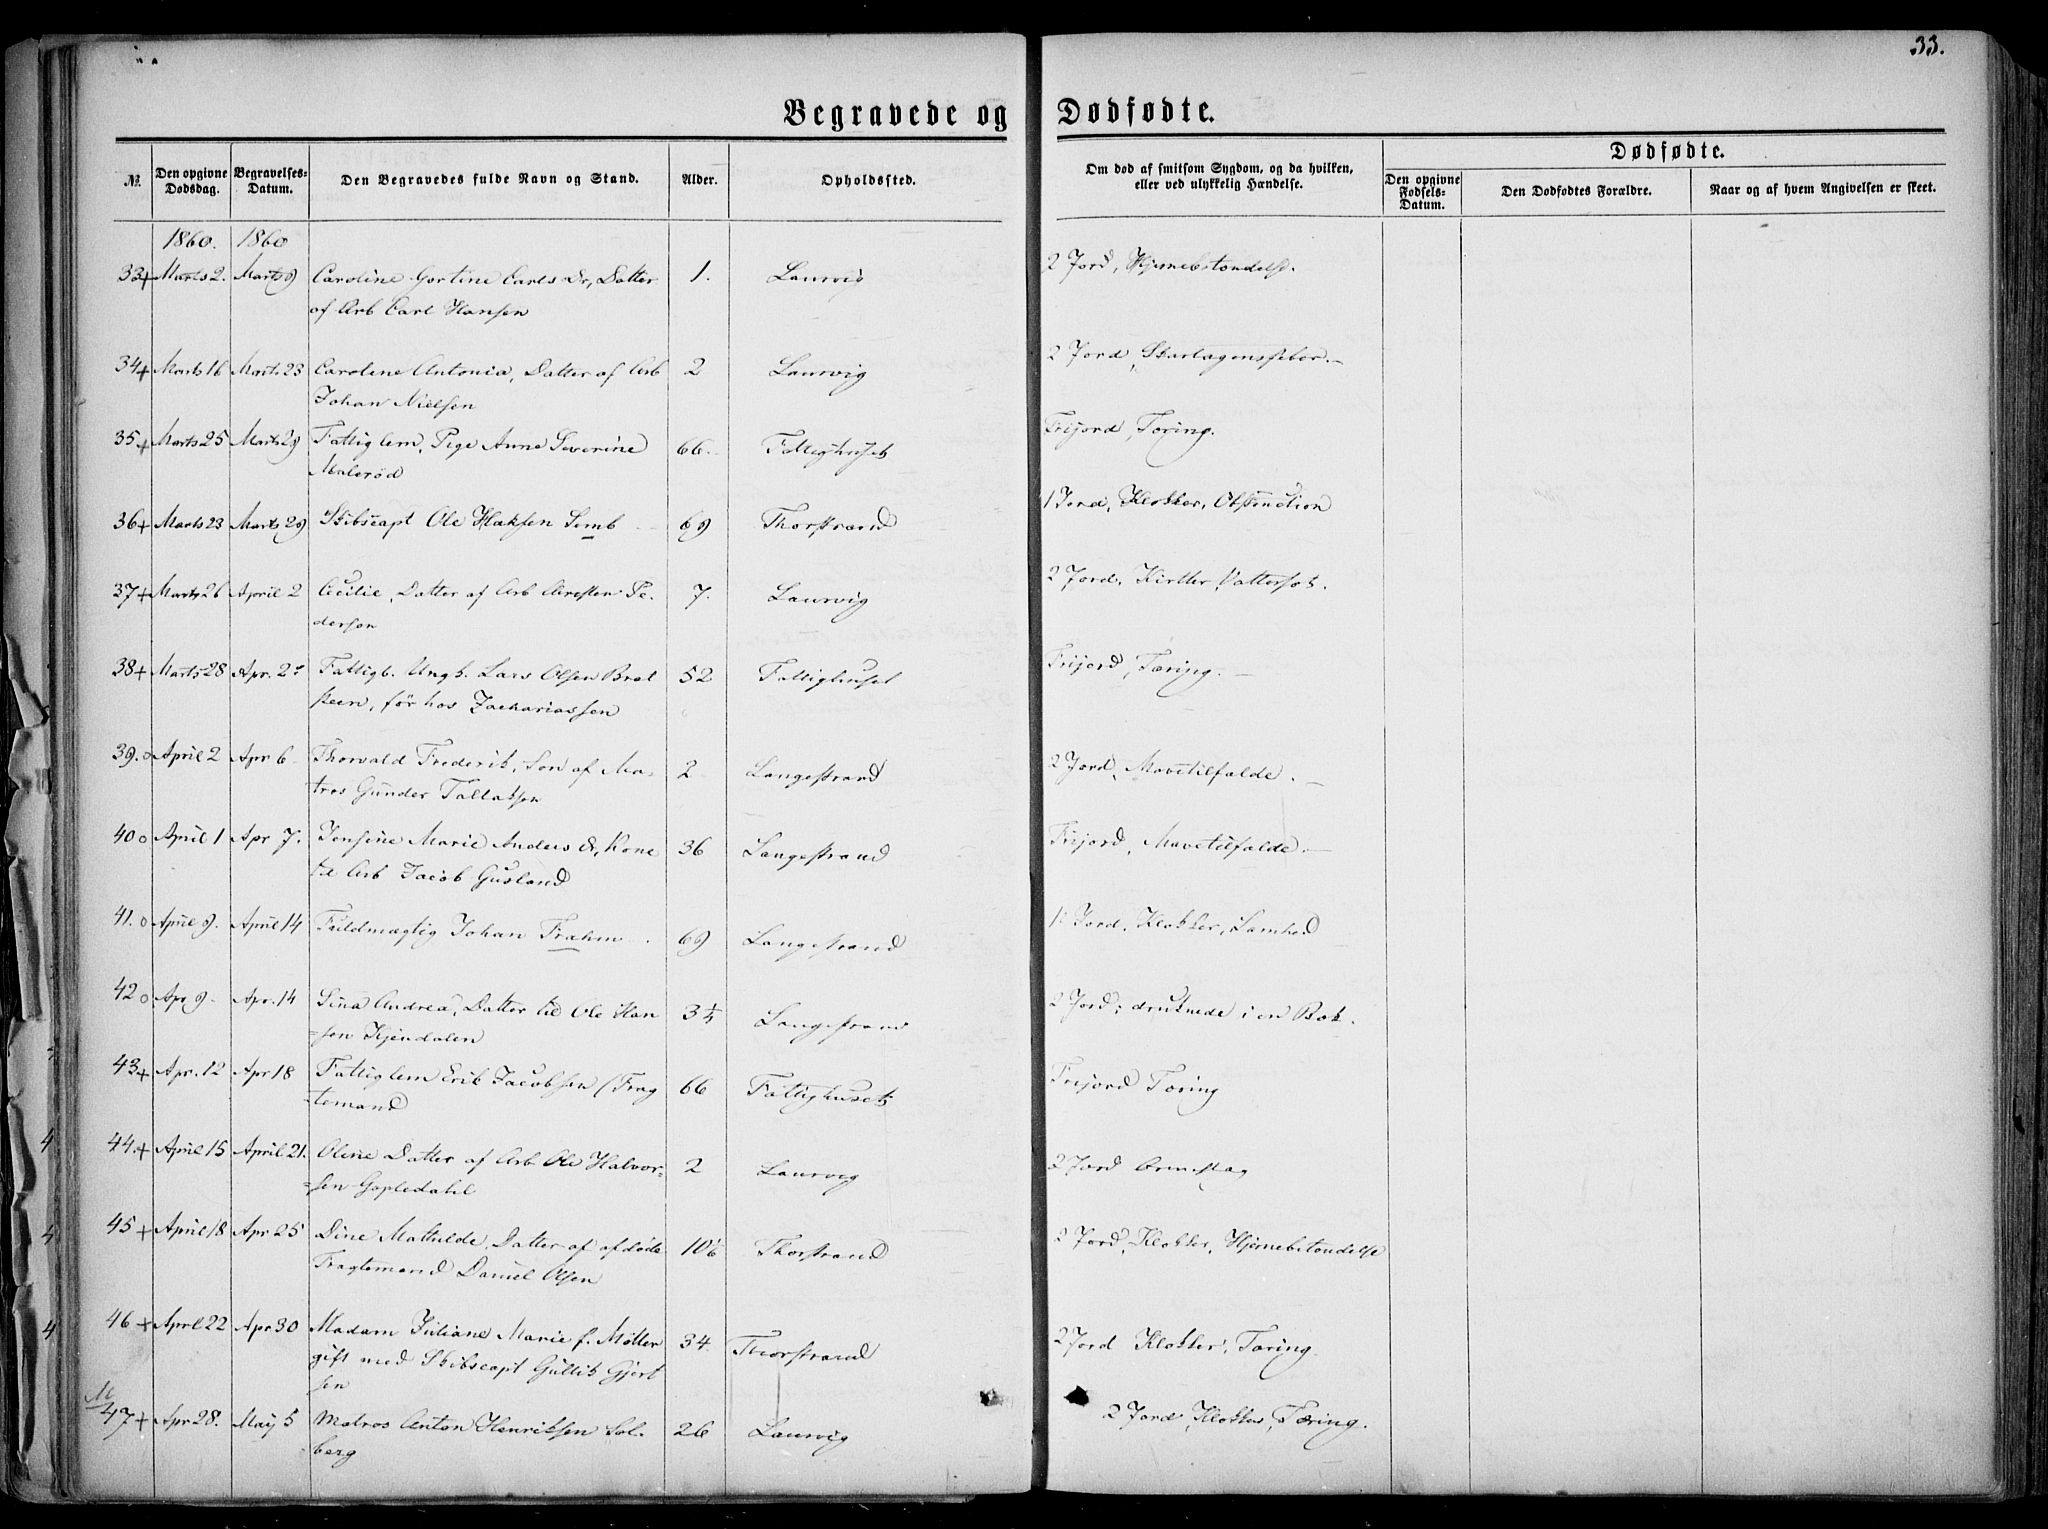 33.
Begravede og Dødfødte.
Dødfødte.
№.
Den opgivne Dødsdag.
Begravelses-Datum.
Den Begravedes fulde Navn og Stand.
Alder.
Opholdssted.
Om død af smitsom Sygdom, og da hvilken, eller ved ulykkelig Hændelse.
Den opgivne Fødsels-Datum.
Den Dødfødtes Forældre.
Naar og af hvem Angivelsen er skeet.
1860. 1860
33+ Marts 2. Marts 9 Caroline Gortine Carls Dr, Datter 1. Laurvig 2 Jord, Hjernebetændelse.
af Arb Carl Hansen
34+ Marts 16 Marts 23 Caroline Antonia, Datter af Arb 2 Laurvig 2 Jord, Skarlagensfeber. —
Johan Nielsen
35+ Marts 25 Marts 29 Fattiglem, Pige Anne Severine 66. Fattighuset Frijord, Tæring.
Malerød
36+ Marts 23 Marts 29 Skibscapt Ole Haksen Semb 69 Thorstrand 1 Jord, Klokker, Obstruction
37+ Marts 26 April 2 Cecilie, Datter af Arb Christen Pe- 7. Laurvig 2 Jord, Kirtler, Vattersot.
dersen
38+ Marts 28 Apr. 2 Fattigb. Ungk. Lars Olsen Brat 52 Fattighuset Frijord, Tæring. —
steen, før hos Zachariassen
39.o April 2 Apr 6 Thorvald Frederik, Søn af Ma- 2 Langestrand 2 Jord, Mavetilfælde. —
tros Gunder Tallaksen
40o April 1 Apr 7. Jensine Marie Anders Dr, Kone 36 Langestrand Frijord, Mavetilfælde. —
til Arb Jacob Gusland
41.o April 9. April 14 Fuldmægtig Johan Frahm 69 Langestrand 1 Jord, Klokker, Lamhed
42o Apr 9. Apr. 14 Sina Andrea, Datter til Ole Han 3¼ Langestrand 2 Jord; druknede i en Bæk.
=sen Kjendalen
43+ Apr. 12 Apr 18 Fattiglem Erik Jacobsen (Frag 66 Fattighuset Frijord Tæring
=temand
44.+ April 15 April 21. Olene Datter af Arb Ole Halvor- 2 Laurvig 2 Jord
=sen Gopledahl
45+ April 18 Apr 25 Dine Mathilde, Datter af afdøde 10 Thorstrand 2 Jord, Klokker, Hjernebetændelse
Fragtemand Daniel Olsen
46+ April 22 Apr 30 Madam Juliane Marie f. Møller 34. Thorstrand 2 Jord Klokker, Tæring.
gift med Skibscapt Gullik Gjert
sen
47+ Apr 28. May 5 Matros Anton Henriksen Sol- 26 Laurvig 2 Jord, Klokker, Tæring.
berg